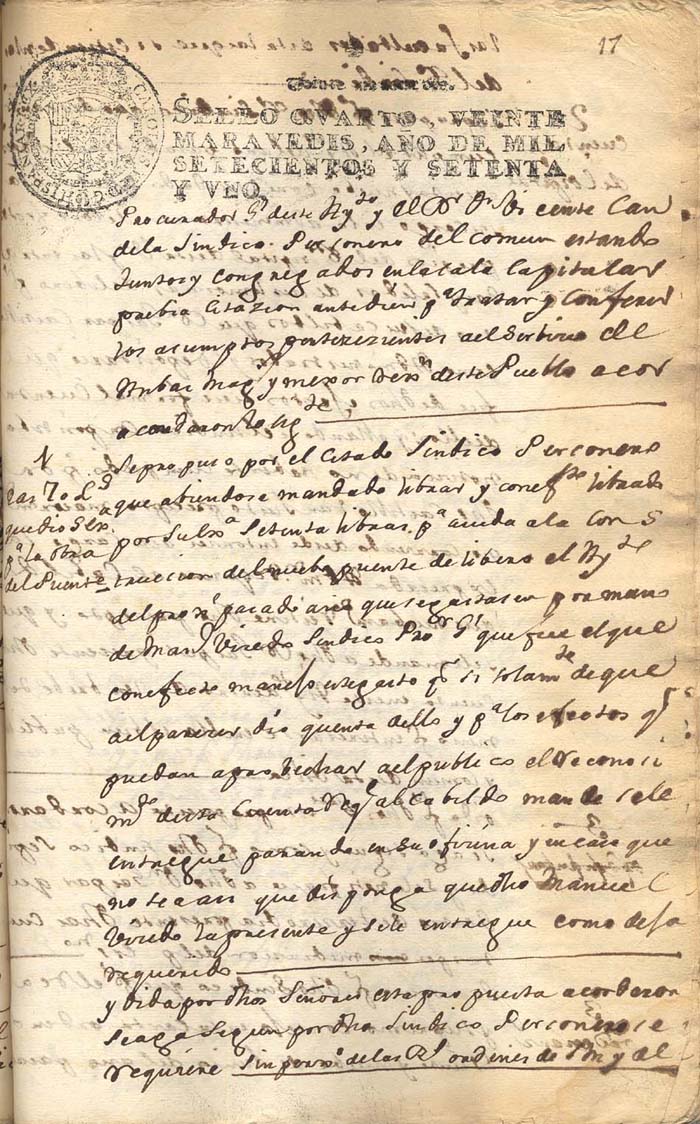 17
Veinte maravedis.
SELLO QVARTO, VEINTE
MARAVEDIS, AÑO DE MIL
SETECIENTOS Y SETENTA
Y VNO.
Procurador Gl deste Ayto y el Dr Dn Vicente Can
dela Sindico Personero del comun estando
Juntos y congregados enlasala Capitular
prebia Citazion antediem pa tratar y Conferir
los asumptos pertenezientes al Serbicio de
Ambas Mags y mexor de este Pueblo acor
acordaron lo sigte
1
Sepropuso por el Citado Sindico Personero
que abiendose mandado librar y conefto librado
por Su Setenta libras pa aiuda ala Cons
truccion del nuebo puente de libero el Ayto
del proxo pasado año que segastasen por mano
de Manl Viredo Sindico Pror Gl que fue el que
conefecto manejo estegasto qe si solamte de que
al parecer dio quenta dello y pa los efectos qe
puedan aprobechar al publico el reconosi
mto desta Cuenta al Cabildo mande sele
entregue parando en su ofizina y encaso que
no sea asi que disponga que dho Manuel
Viredo lapresente y sele entregue como desa
requerido
y oida por dhos Señores esta propuesta acordaron
seaga Segun por dho Sindico Personero se
requiere Sin perxo de las Rs ordines de
Las 70 Ls
que dio
pa la obra
del Puente